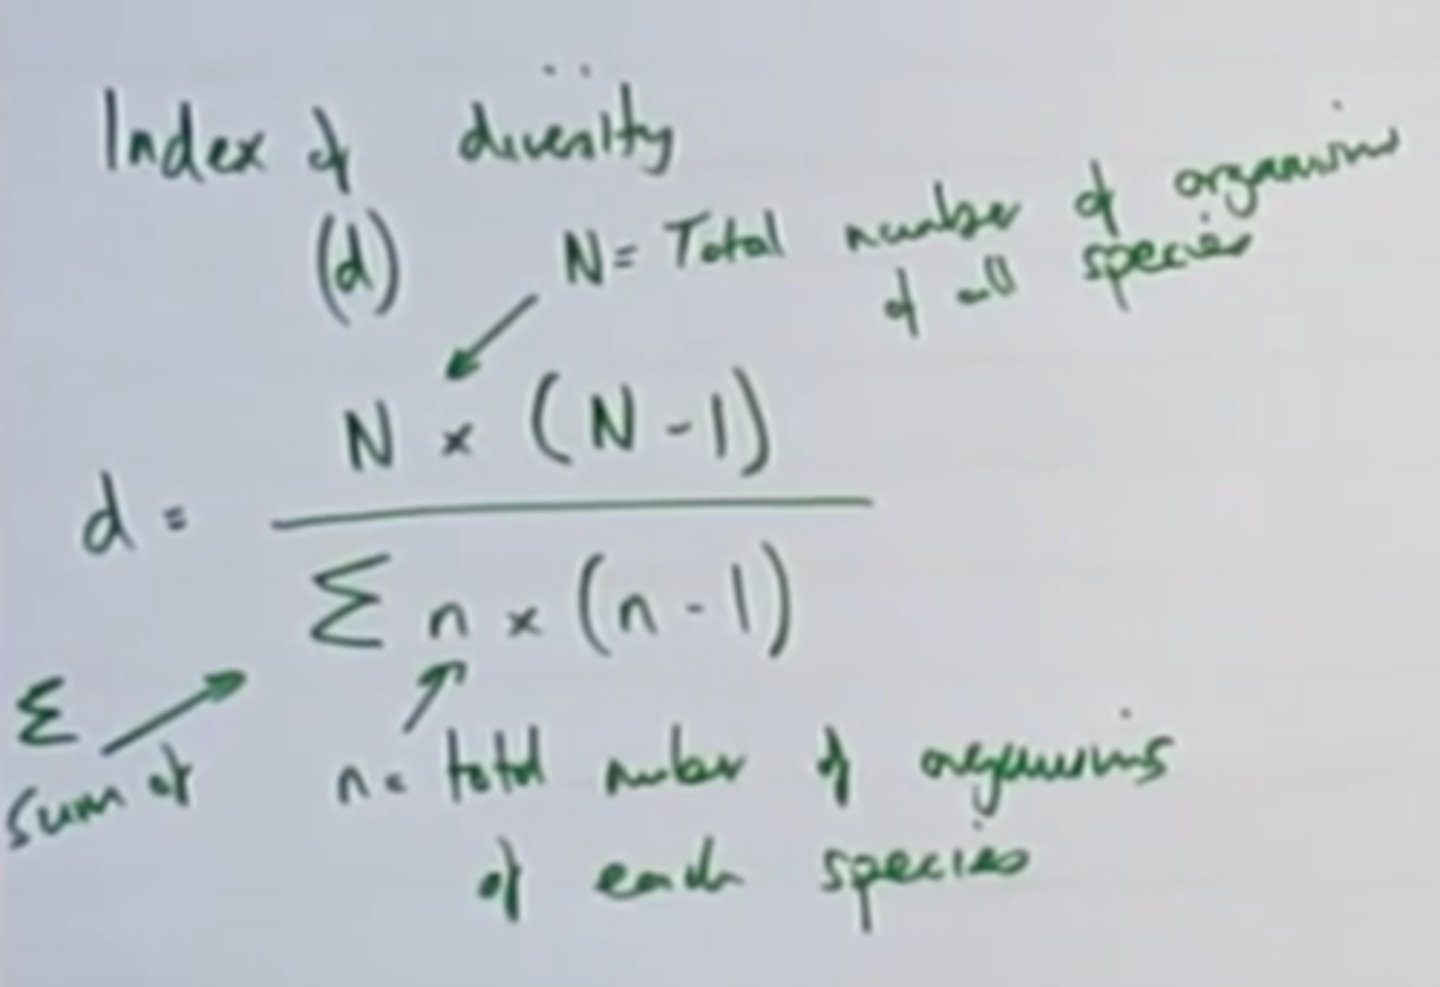 Index of diversity
(d)
N = Total number of organisms
of all species
N × (N - 1)
d =
Σ n × (n - 1)
Σ
sum of
n = total number of organisms
of each species